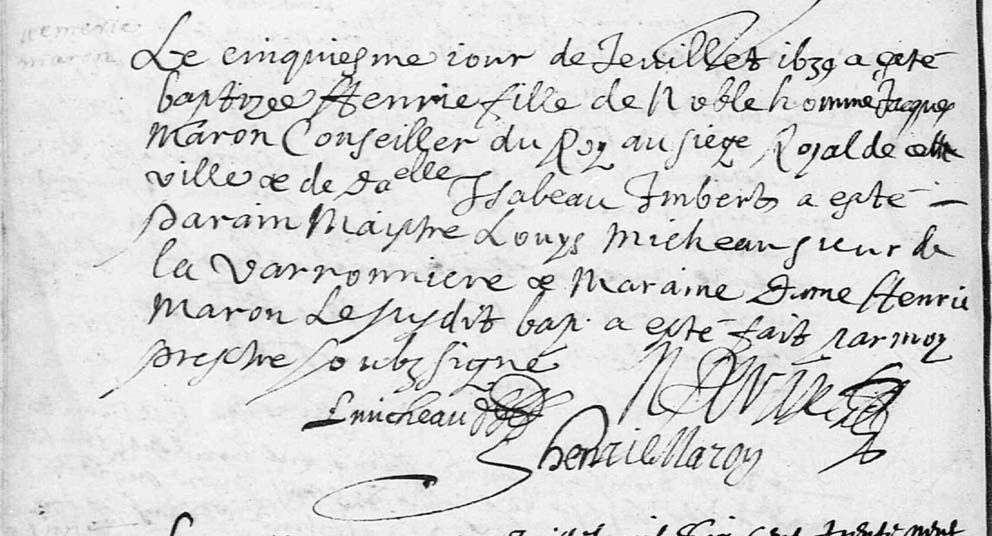 henrie
maron
Le cinquiesme iour de Jeuillet 1639 a este
baptizee Henrie fille de Noble homme Jacques
Maron Conseiller du Roy au siege Royal de cette
ville & de daelle Isabeau Imbert a este
parain Maistre Louys Micheau sieur de
la Varronniere & Maraine Dame Henrie
Maron Le susdit bap. a esté fait par moy
prestre soubz signé
L micheau
henrie Maron